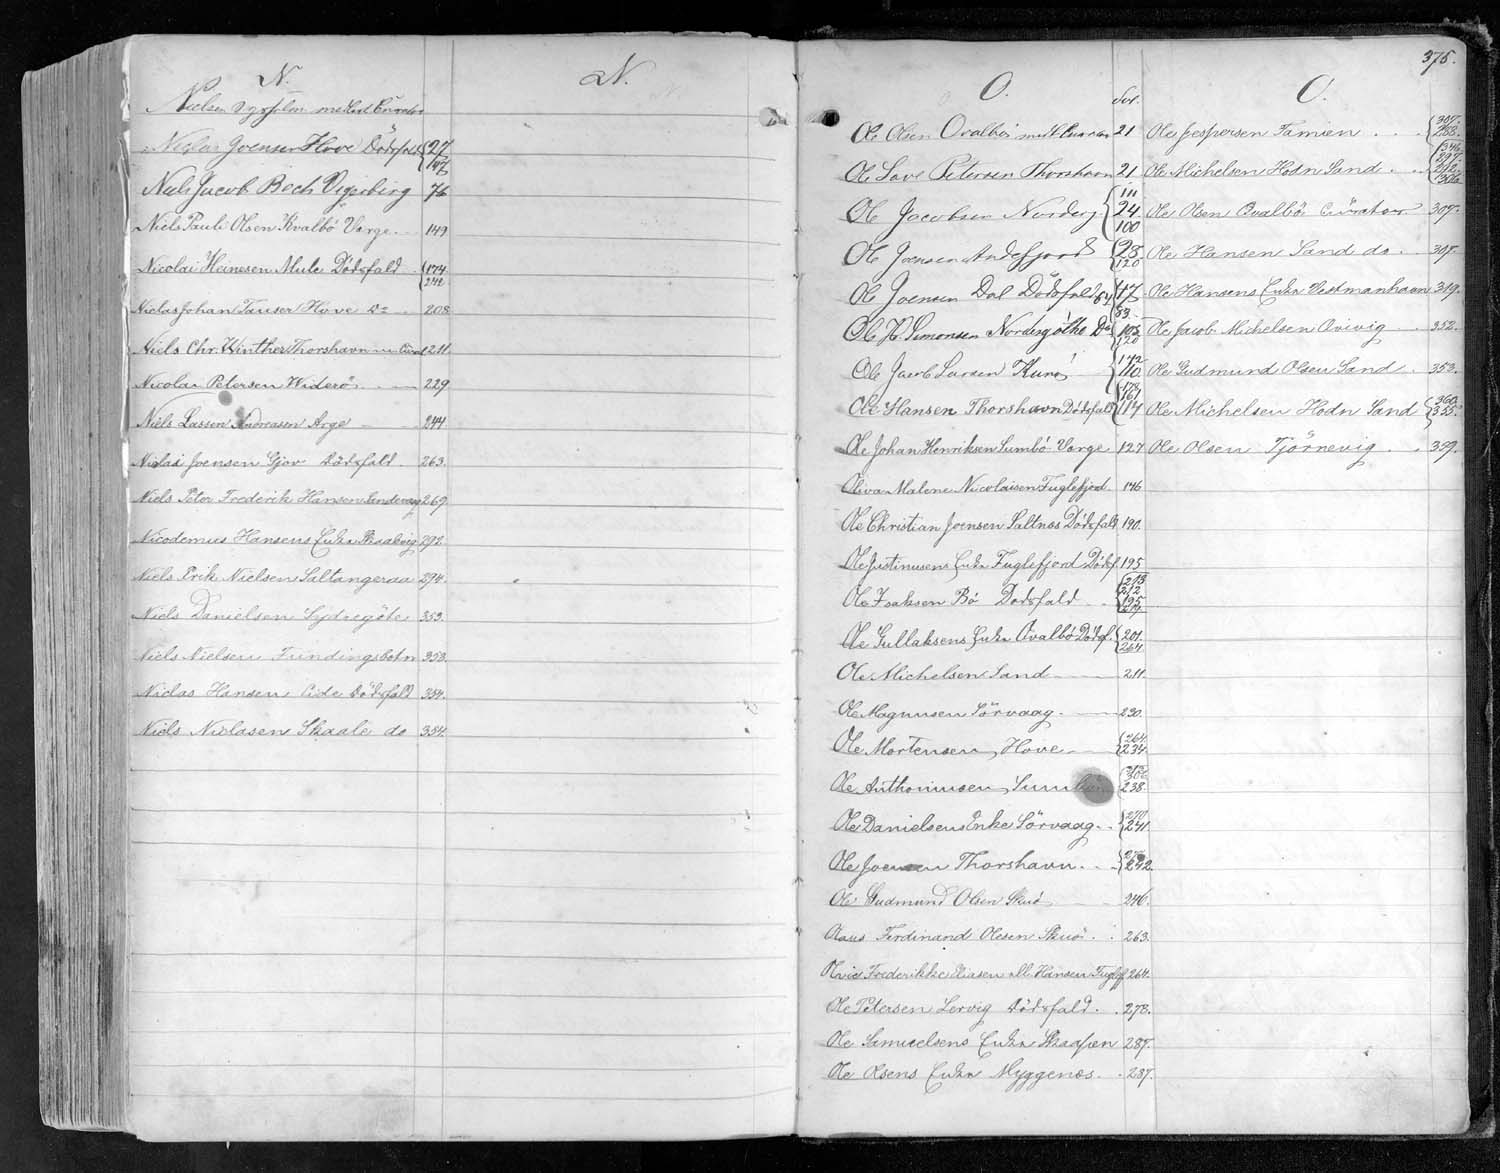 N.
Nielsen med Curator
Niclas Joensen Hove Dödsfald 27 147
Niels Jacob Bech Vejerbirg 76
Niels Pauli Olsen Kvalbö Værge 149
Nicolai Heinesen Mule Dödsfald 174 242
Niclas Johan Tauser Hove Do 208
Niels Chr. Winther Thorshavn 211
Nicolai Petersen Widerö 229
Niels Lassen Andreasen Arge 244
Niclas Joensen Gjov Dödsfald 263.
Niels Peter Frederik Hansen 269
Nicodemus Hansens Enke Skaalevig 292
Niels Erik Nielsen Saltangeraa 294.
Niels Danielsen Sydregöte 353.
Niels Nielsen Fundingsbotn 353.
Niclas Hansen Eide Dödsfald 354.
Niels Niclasen Skaale do 354.
N.
O.
Ole Olsen Qvalbö med Curator 21
Ole Petersen Thorshavn 21
Ole Jacobsen Norderg 111 24 100
Ole Joensen Andefjord 28 120
Ole Joensen Dal Dödsfald 64 47 83
Ole H. Simonsen Nordregöthe Do 105 120
Ole Jacob Larsen Kunö 172 110
Ole Hansen Thorshavn Dödsfald 178 161 114
Ole Johan Henriksen Sumbö Værge 127
Oliva Malene Nicolaisen Fuglefjord 146
Ole Christian Joensen Saltnæs Dödsfald 190.
Ole Justinusens Enke Fuglefjord Dödsf. 195
Ole Isaksen Bö Dödsfald 213 212 195
Ole Gullaksens Enke Qvalbö Dödsf. 201 264.
Ole Michelsen Sand 211
Ole Magnusen Sörvaag 230.
Ole Mortensen Hove 264 234.
Ole Anthoniusen 238.
Ole Danielsens Enke Sörvaag 270 241.
Ole Joensen Thorshavn 242.
Ole Gudmund Olsen Skuö 246.
Claus Ferdinand Olesen Skuö 263.
Frederikke Eliasen ell. Hansen Fuglefj 264.
Ole Petersen Lervig Dödsfald 278.
Ole Samuelsens Enke Skaapen 287.
Ole Olsens Enke Myggenæs 287.
375.
O.
Ole Jespersen Famien 307. 288.
Ole Michelsen Hodn Sand 346 297. 306
Ole Olsen Qvalbö Curator 307.
Ole Hansen Sand do 307.
Ole Hansens Enke Vestmanhavn 319.
Ole Jacob Michelsen Qvivig 352.
Ole Gudmund Olsen Sand 353.
Ole Michelsen Hodn Sand 360. 355.
Ole Olsen Tjörnevig 359.